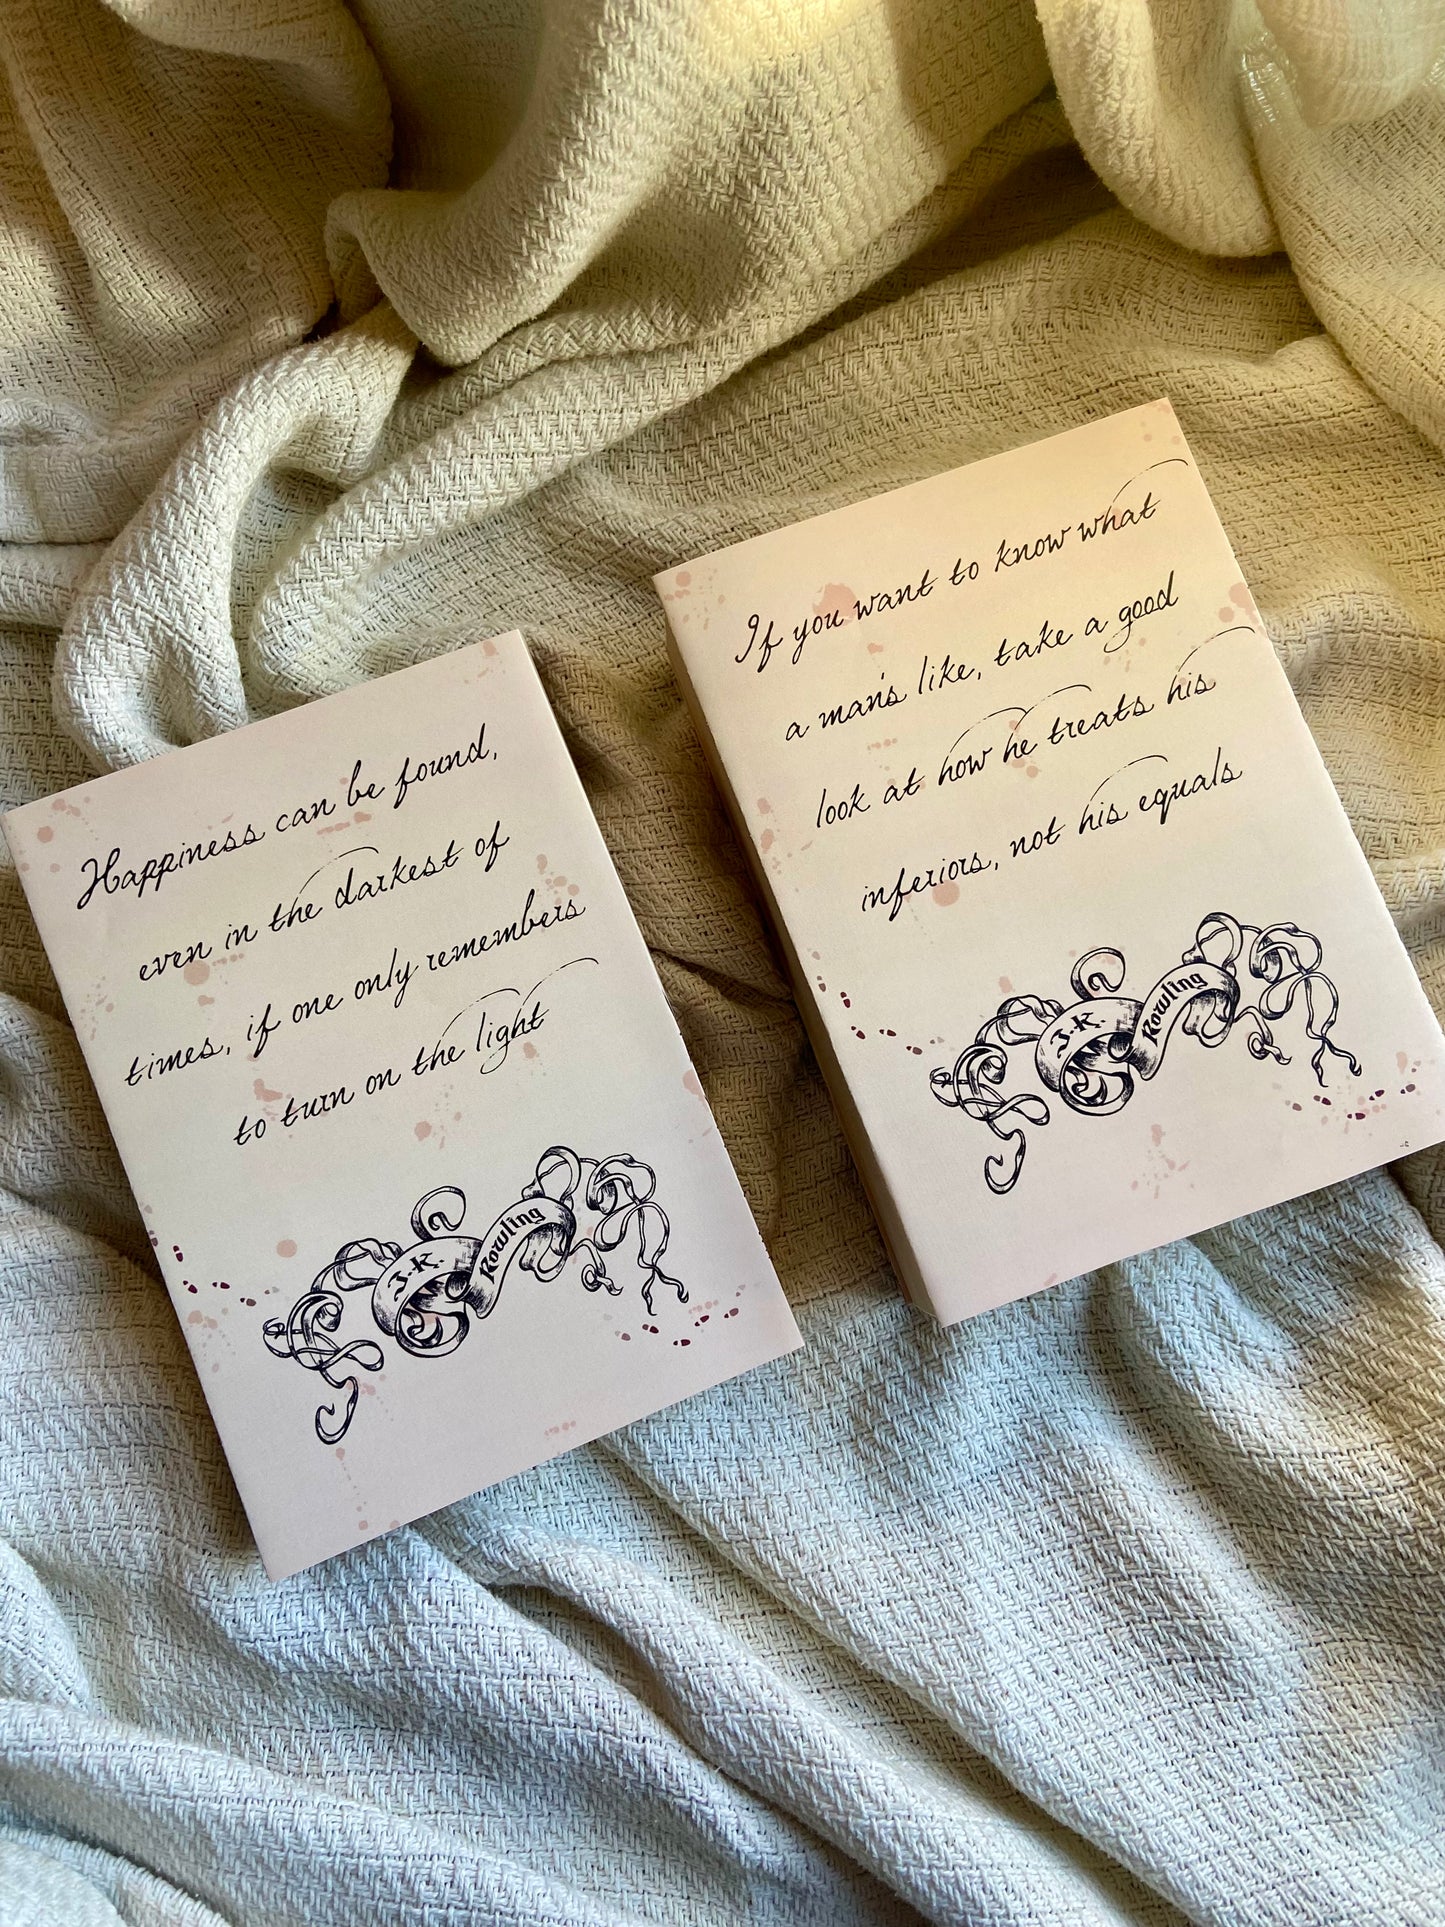 Happiness can be found,
even in the darkest of
times, if one only remembers
to turn on the light
J.K. Rowling
If you want to know what
a man's like, take a good
look at how he treats his
inferiors, not his equals
J.K. Rowling